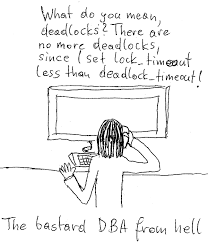 What do you mean,
deadlocks? There are
no more deadlocks,
since I set lock_timeout
less than deadlock_timeout!
The bastard DBA from hell